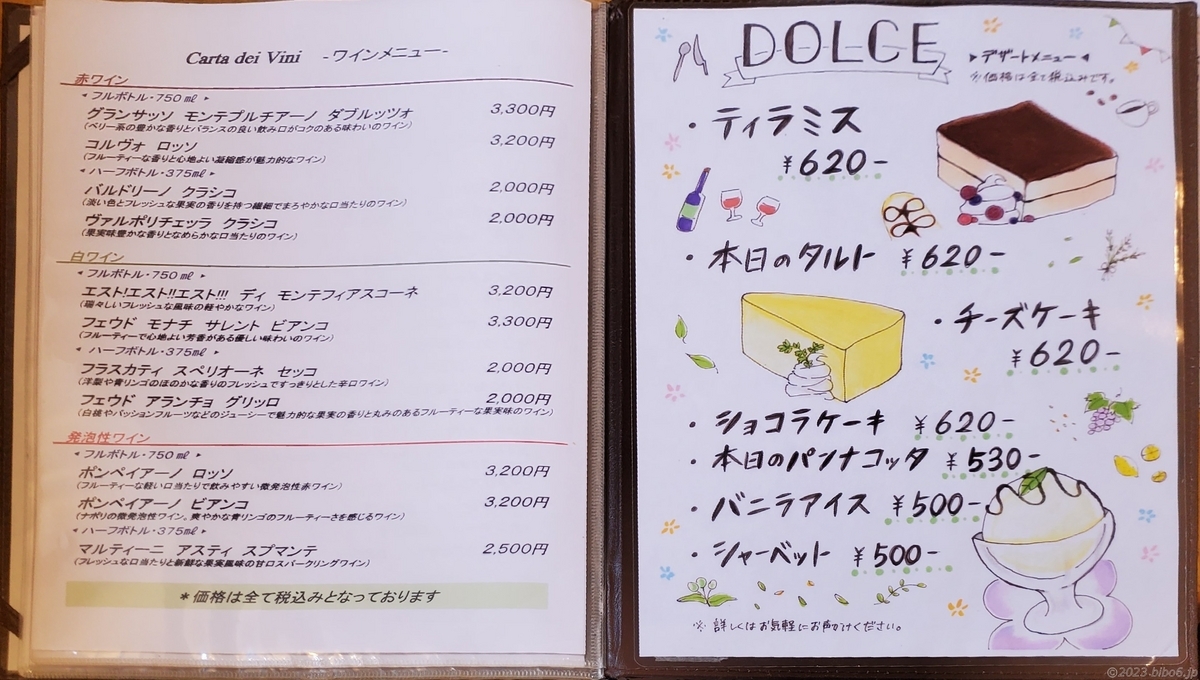 Carta dei Vini -ワインメニュー-
赤ワイン
◂ フルボトル・750㎖ ▸
グランサッソ モンテプルチアーノ ダブルッツォ 3,300円
(ベリー系の豊かな香りとバランスの良い飲み口がコクのある味わいのワイン)
コルヴォ ロッソ 3,200円
(フルーティーな香りと心地よい凝縮感が魅力的なワイン)
◂ ハーフボトル・375㎖ ▸
バルドリーノ クラシコ 2,000円
(淡い色とフレッシュな果実の香りを持つ繊細でまろやかな口当たりのワイン)
ヴァルポリチェッラ クラシコ 2,000円
(果実味豊かな香りとなめらかな口当たりのワイン)
白ワイン
◂ フルボトル・750㎖ ▸
エスト!エスト!!エスト!!! ディ モンテフィアスコーネ 3,200円
(瑞々しいフレッシュな風味の軽やかなワイン)
フェウド モナチ サレント ビアンコ 3,300円
(フルーティーで心地よい芳香がある優しい味わいのワイン)
◂ ハーフボトル・375㎖ ▸
フラスカティ スペリオーネ セッコ 2,000円
(洋梨や青リンゴのほのかな香りのフレッシュですっきりとした辛口ワイン)
フェウド アランチョ グリッロ 2,000円
(白桃やパッションフルーツなどのジューシーで魅力的な果実の香りと丸みのあるフルーティーな果実味のワイン)
発泡性ワイン
◂ フルボトル・750㎖ ▸
ポンペイアーノ ロッソ 3,200円
(フルーティーな軽い口当たりで飲みやすい微発泡性赤ワイン)
ポンペイアーノ ビアンコ 3,200円
(ナポリの微発泡性ワイン。爽やかな青リンゴのフルーティーさを感じるワイン)
◂ ハーフボトル・375㎖ ▸
マルティーニ アスティ スプマンテ 2,500円
(フレッシュな口当たりと新鮮な果実風味の甘口スパークリングワイン)
*価格は全て税込みとなっております
DOLCE
▸デザートメニュー◂
※価格は全て税込みです。
・ティラミス
¥620-
・本日のタルト ¥620-
・チーズケーキ
¥620-
・ショコラケーキ ¥620-
・本日のパンナコッタ ¥530-
・バニラアイス ¥500-
・シャーベット ¥500-
※詳しくはお気軽にお声がけください。
©2023 blbo6.jp